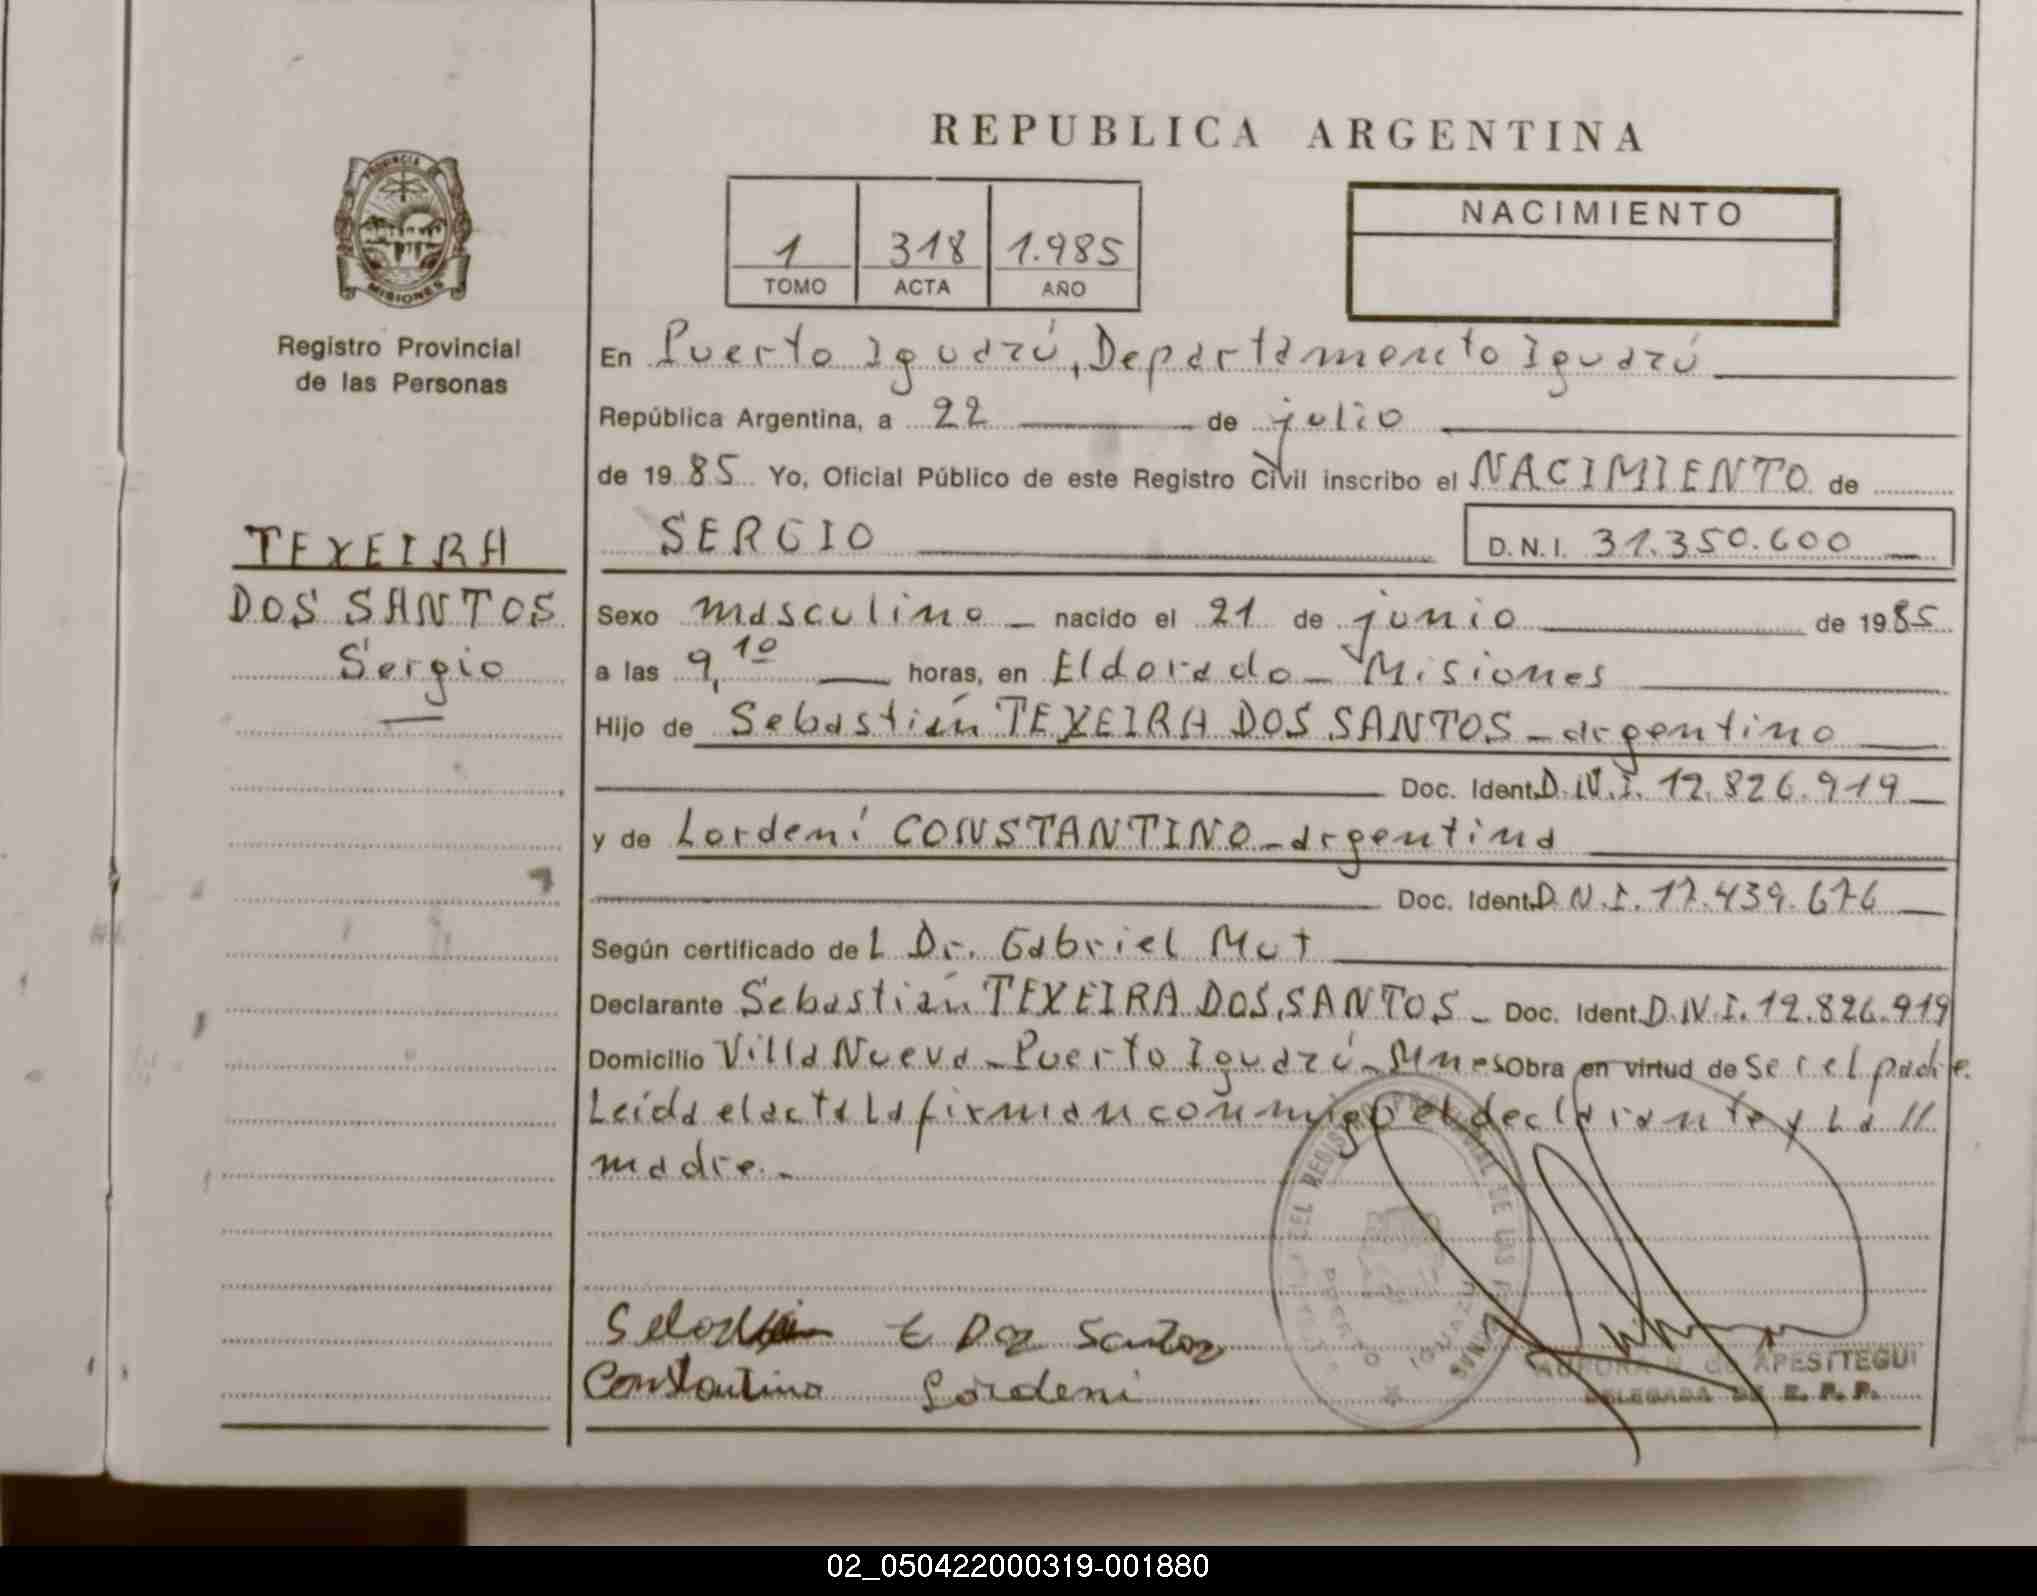 REPUBLICA ARGENTINA
PROVINCIA DE
MISIONES
Registro Provincial
de las Personas
1 318 1.985
TOMO ACTA AÑO
NACIMIENTO
En Puerto Iguazú, Departamento Iguazú
República Argentina, a 22 de julio
de 1985 Yo, Oficial Público de este Registro Civil inscribo el NACIMIENTO de
SERGIO D.N.I. 31.350.600
TEXEIRA
DOS SANTOS
Sergio
Sexo masculino nacido el 21 de junio de 1985
a las 9,10 horas, en Eldorado - Misiones
Hijo de Sebastián TEXEIRA DOS SANTOS - argentino
Doc. Ident. D.N.I. 12.826.919
y de Lordení CONSTANTINO - argentina
Doc. Ident. D.N.I. 17.439.676
Según certificado de L Dr. Gabriel Mut
Declarante Sebastián TEXEIRA DOS SANTOS - Doc. Ident. D.N.I. 12.826.919
Domicilio Villa Nueva - Puerto Iguazú - Mnes Obra en virtud de ser el padre.
Leída el acta la firman conmigo el declarante y la //
madre.-
T Dos Santos
Constantino Lordeni
DEL REGISTRO PROVINCIAL DE LAS
PUERTO IGUAZU
AURORA N. de APESTTEGUI
DELEGADA DE R. P. P.
02_050422000319-001880